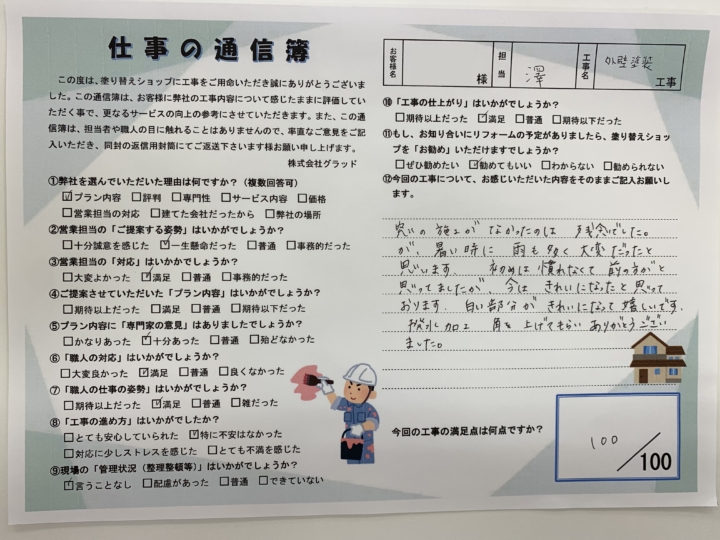 仕事の通信簿
お客様名 様 担当 澤 工事名 外壁塗装 工事
この度は、塗り替えショップに工事をご用命いただき誠にありがとうございま
した。この通信簿は、お客様に弊社の工事内容について感じたままに評価してい
ただく事で、更なるサービスの向上の参考にさせていただきます。また、この通
信簿は、担当者や職人の目に触れることはありませんので、率直なご意見をご記
入いただき、同封の返信用封筒にてご返送下さいます様お願い申し上げます。
株式会社グラッド
①弊社を選んでいただいた理由は何ですか？（複数回答可）
☑プラン内容 □評判 □専門性 □サービス内容 □価格
□営業担当の対応 □建てた会社だったから □弊社の場所
②営業担当の「ご提案する姿勢」はいかがでしたか？
□十分誠意を感じた ☑一生懸命だった □普通 □事務的だった
③営業担当の「対応」はいかがでしたか？
□大変よかった ☑満足 □普通 □事務的だった
④ご提案させていただいた「プラン内容」はいかがでしたか？
□期待以上だった □満足 □普通 □期待以下だった
⑤プラン内容に「専門家の意見」はありましたでしょうか？
□かなりあった ☑十分あった □普通 □殆どなかった
⑥「職人の対応」はいかがでしょうか？
□大変良かった ☑満足 □普通 □良くなかった
⑦「職人の仕事の姿勢」はいかがでしょうか？
□期待以上だった ☑満足 □普通 □雑だった
⑧「工事の進め方」はいかがでしたか？
□とても安心していられた ☑特に不安はなかった
□対応に少しストレスを感じた □とても不満を感じた
⑨現場の「管理状況（整理整頓等）」はいかがでしょうか？
☑言うことなし □配慮があった □普通 □できていない
⑩「工事の仕上がり」はいかがでしょうか？
□期待以上だった ☑満足 □普通 □期待以下だった
⑪もし、お知り合いにリフォームの予定がありましたら、塗り替えショッ
プを「お勧め」いただけますでしょうか？
□ぜひ勧めたい ☑勧めてもいい □わからない □勧められない
⑫今回の工事について、お感じいただいた内容をそのままご記入お願いし
ます。
窓の施工がなかったのは 残念でした。
が、暑い時に 雨も多く大変だったと
思います。 初めは慣れなくて前の方がと
思ってましたが、今は きれいになったと思って
おります。白い部分が きれいになって嬉しいです。
撥水加工 角を上げてもらい ありがとうござい
ました。
今回の工事の満足点は何点ですか？
100／100